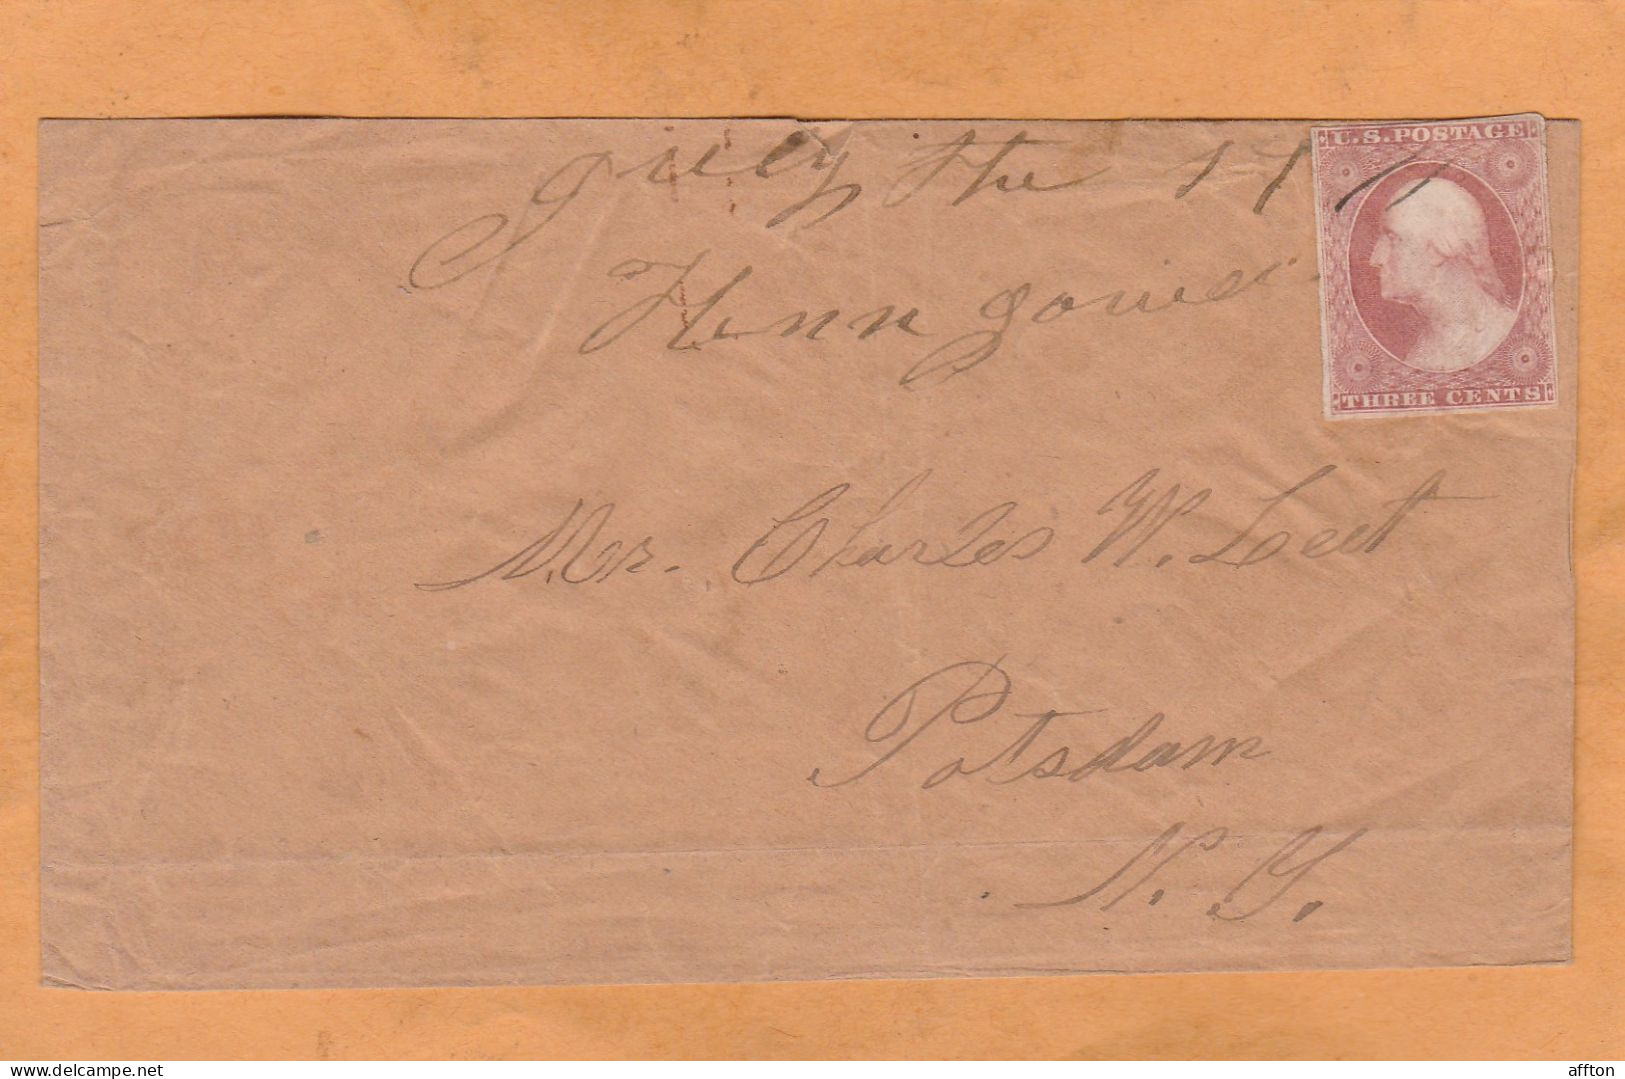 July the 17
U.S. POSTAGE
THREE CENTS
Mr. Charles W. Leet
Potsdam
N. Y.
www.delcampe.net
affton